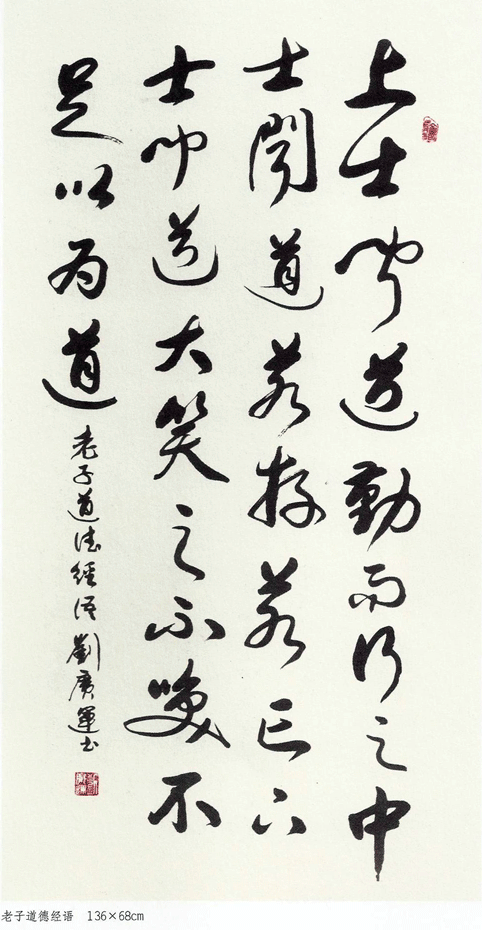 上士闻道勤而行之中
士闻道若存若亡下
士闻道大笑之不笑不
足以为道
老子道德经语 劉廣運书
老子道德经语 136×68cm